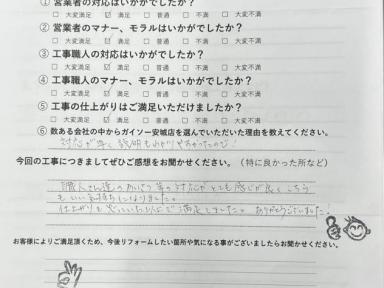 ① 営業者の対応はいかがでしたか？
□ 大変満足 ☑ 満足 □ 普通 □ 不満 □ 大変不満
② 営業者のマナー、モラルはいかがでしたか？
□ 大変満足 ☑ 満足 □ 普通 □ 不満 □ 大変不満
③ 工事職人の対応はいかがでしたか？
□ 大変満足 ☑ 満足 □ 普通 □ 不満 □ 大変不満
④ 工事職人のマナー、モラルはいかがでしたか？
□ 大変満足 ☑ 満足 □ 普通 □ 不満 □ 大変不満
⑤ 工事の仕上がりはご満足いただけましたか？
□ 大変満足 ☑ 満足 □ 普通 □ 不満 □ 大変不満
⑥ 数ある会社の中からガイソー安城店を選んでいただいた理由を教えてください。
対応が早く説明もわかりやすかったので！
今回の工事につきましてぜひご感想をお聞かせください。（特に良かった所など）
職人さん達のあいさつ等の対応がとても感じが良くこちら
もいい気持ちになりました。
仕上がりも思っていた以上で満足しました。ありがとうございました！
お客様によりご満足頂くため、今後リフォームしたい箇所や気になる事がございましたらお聞かせください。